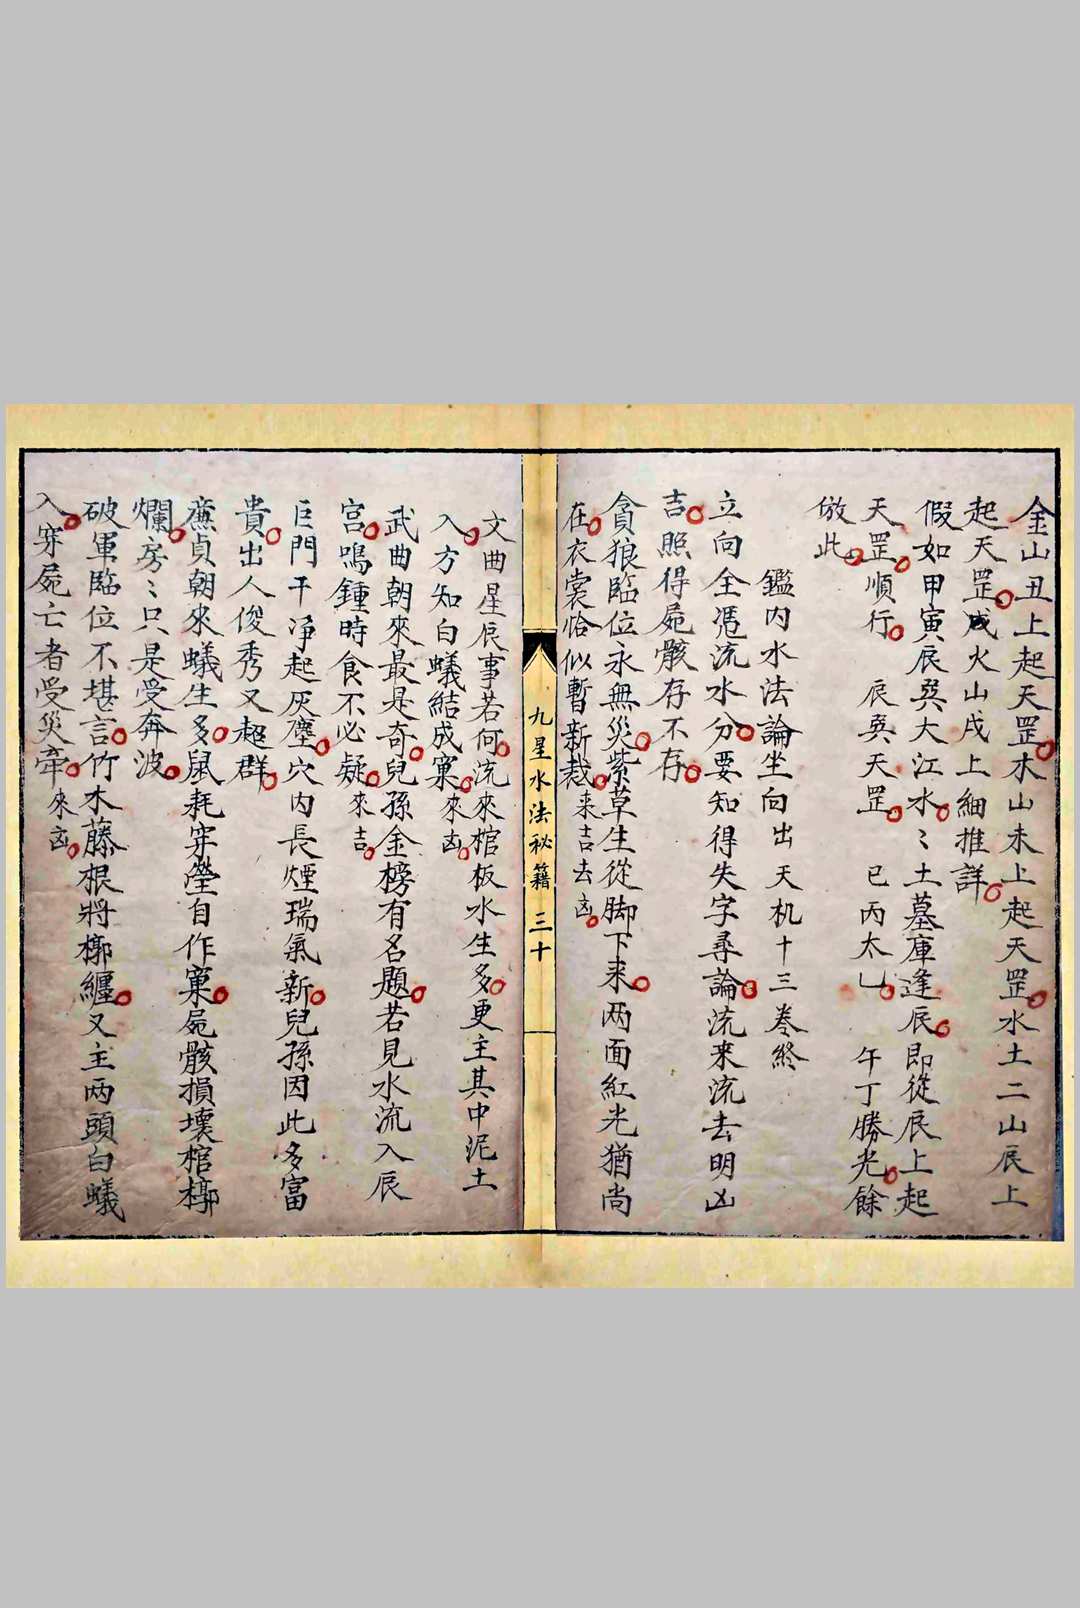 金山丑上起天罡木山未上起天罡水土二山辰上
起天罡咸火山戌上細推詳
假如甲寅辰巽大江水〻土墓庫逢辰即從辰上起
天罡順行　辰巽天罡　巳丙太乙　午丁勝光餘
倣此
鑑内水法論坐向出天机十三卷終
立向全憑流水分要知得失字尋論流来流去明凶
吉照得屍骸存不存
貪狼臨位永無災紫草生從脚下来两面紅光猶尚
在衣裳恰似暫新裁来吉去凶
九星水法秘籍　三十
文曲星辰事若何流來棺板水生多更主其中泥土
入方知白蟻結成窠來凶
武曲朝來最是奇兒孫金榜有名題若見水流入辰
宫鳴鍾時食不必疑來吉
巨門干净起灰塵穴内長煙瑞氣新兒孫因此多富
貴出人俊秀又超群
廉貞朝來蟻生多鼠耗穿瑩自作窠屍骸損壞棺槨
爛房〻只是受奔波
破軍臨位不堪言竹木藤根將槨纏又主两頭白蟻
入穿屍亡者受災牽來凶